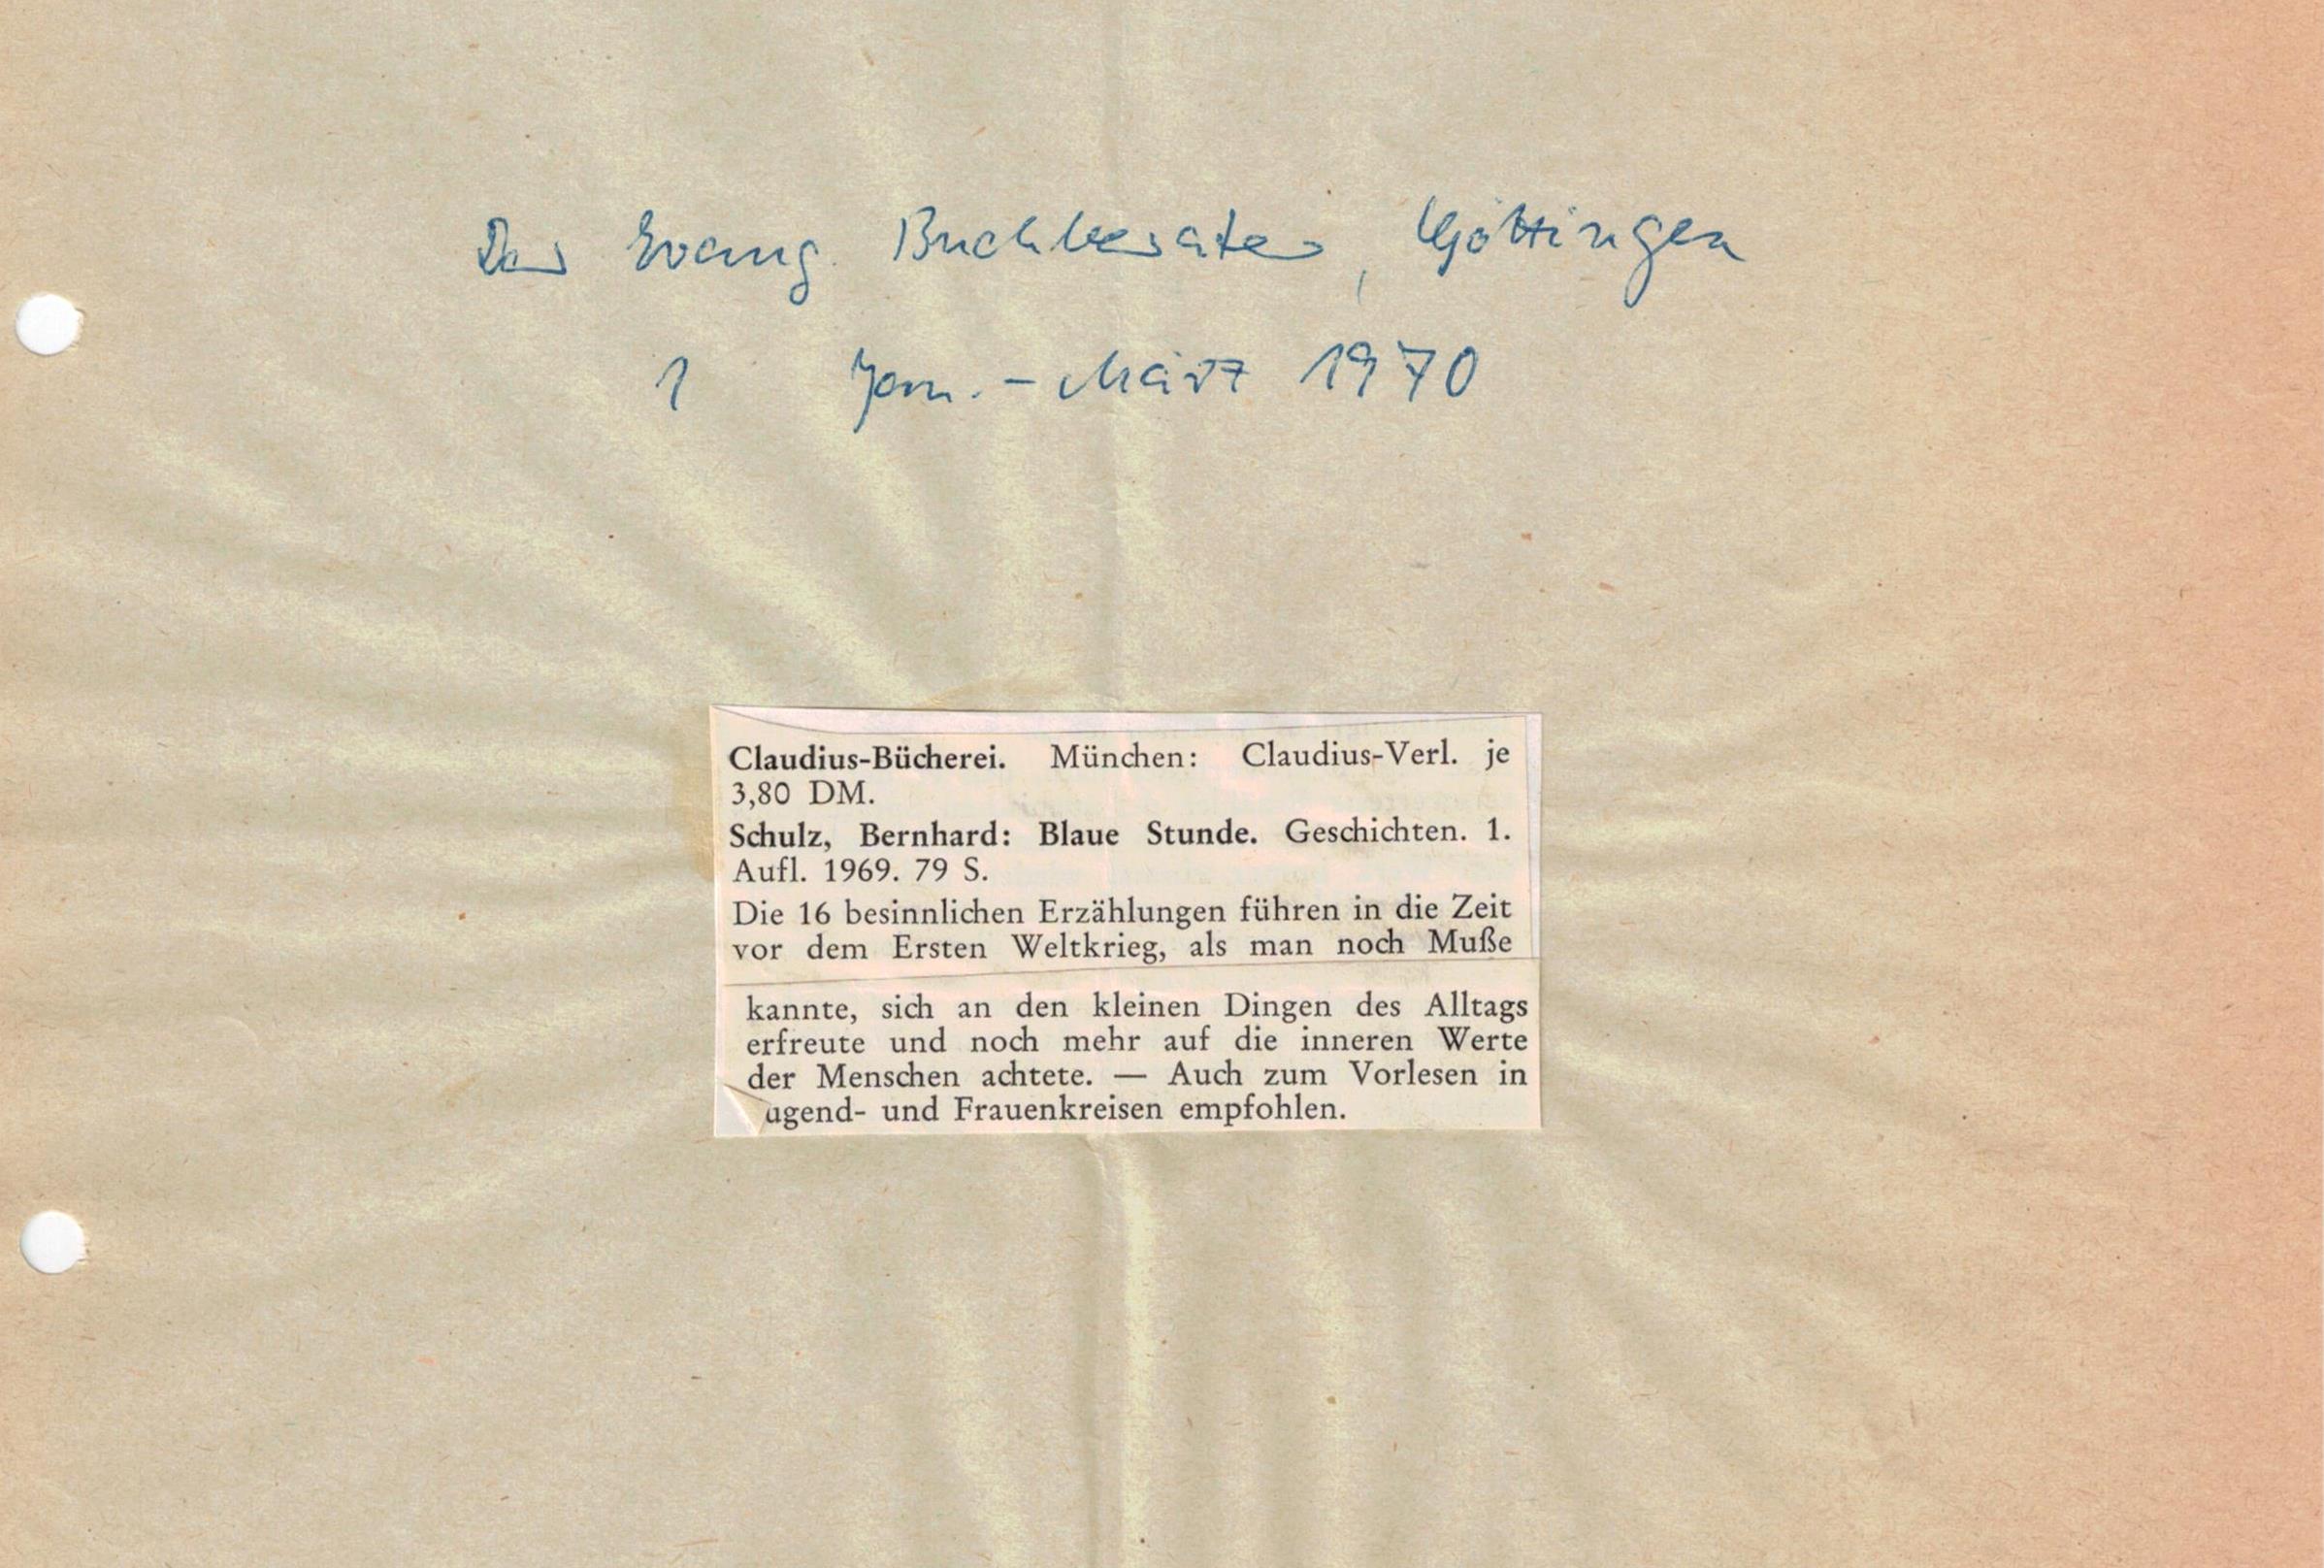 Der Evang. Buchberater, Göttingen
1 Jan. - März 1970
Claudius-Bücherei. München: Claudius-Verl. je
3,80 DM.
Schulz, Bernhard: Blaue Stunde. Geschichten. 1.
Aufl. 1969. 79 S.
Die 16 besinnlichen Erzählungen führen in die Zeit
vor dem Ersten Weltkrieg, als man noch Muße
kannte, sich an den kleinen Dingen des Alltags
erfreute und noch mehr auf die inneren Werte
der Menschen achtete. — Auch zum Vorlesen in
ugend- und Frauenkreisen empfohlen.